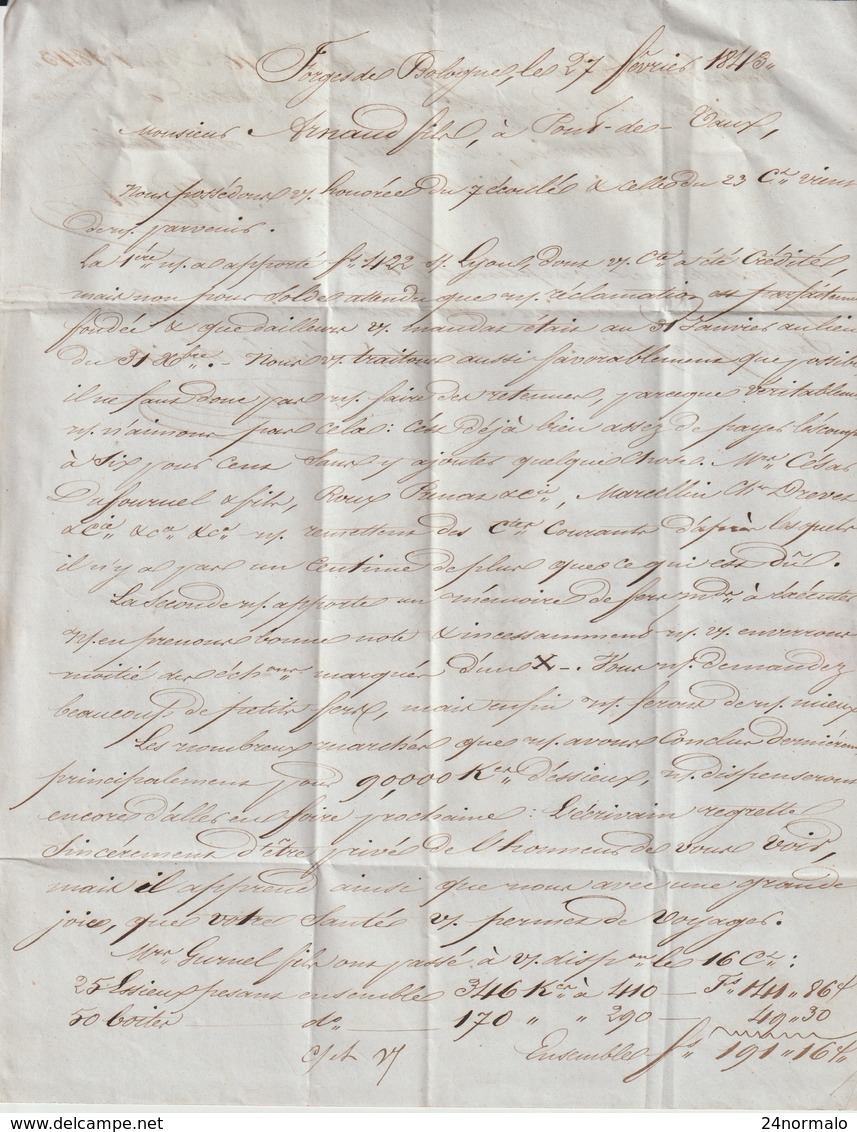 Forges de Bologne, le 27 février 1843.
Monsieur Arnaud fils, à Pont-de-Vaux,
Nous possédons v/. honorée du 7 écoulé & celle du 23 Ct. vient
de n/. parvenir.
La 1ère n/. a apporté fs 422 s/. Lyon, dont v/. Cte a été Crédité,
mais non pour Solde attendu que n/. réclamation est parfaitement
fondée & que d'ailleurs v/. mandat était au 31 Janvier au lieu
du 31 Xbre. - Nous v/. traitons aussi favorablement que possible
il ne faut donc pas n/. faire des retenues, parceque véritablement
n/. n'aimons pas cela : c'est déjà bien assez de payer l'escompte
à Six pour cent Sans y ajouter quelque chose. Mrs. César
Dufournel & fils, Roux & Cie, Marcellin Drevet
& Cie &ca &ca n/. remettent des Ctes Courants d'après lesquels
il n'y a pas un Centime de plus que ce qui est dû.
La seconde n/. apporte un mémoire de fers mds à
N/. en prenons bonne note & incessamment n/. v/. enverrons
moitié des échons marqués d'un X-. Vous n/. demandez
beaucoup de petits fers, mais enfin n/. ferons de n/. mieux
Les nombreux marchés que n/. avons Conclus dernièrement
principalement pour 90,000 Kes d'éssieux, n/. dispenseront
encore d'aller en foire prochaine : L'écrivain regrette
Sincèrement d'être privé de l'honneur de vous voir,
mais il apprend ainsi que nous avec une grande
joie, que votre Santé v/. permet de voyager.
Mrs Gurnel fils ont passé à v/. dispon le 16 Ct :
25 Essieux pesant ensemble 346 Kes à 410 - Fs 141 " 86 c/
50 boites do 170 " " 290 - 49 " 30
c/ et v/ Ensemble fs 191 " 16 c/.
24normalo